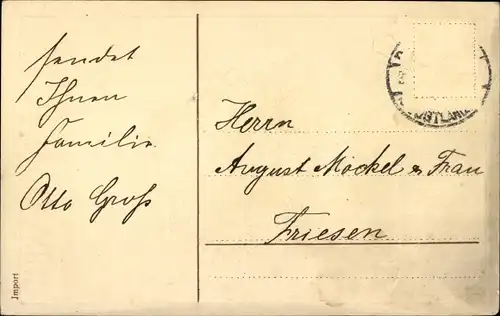 sendet
Ihnen
Familie
Otto Groß
Herrn
August Möckel & Frau
Friesen
Import